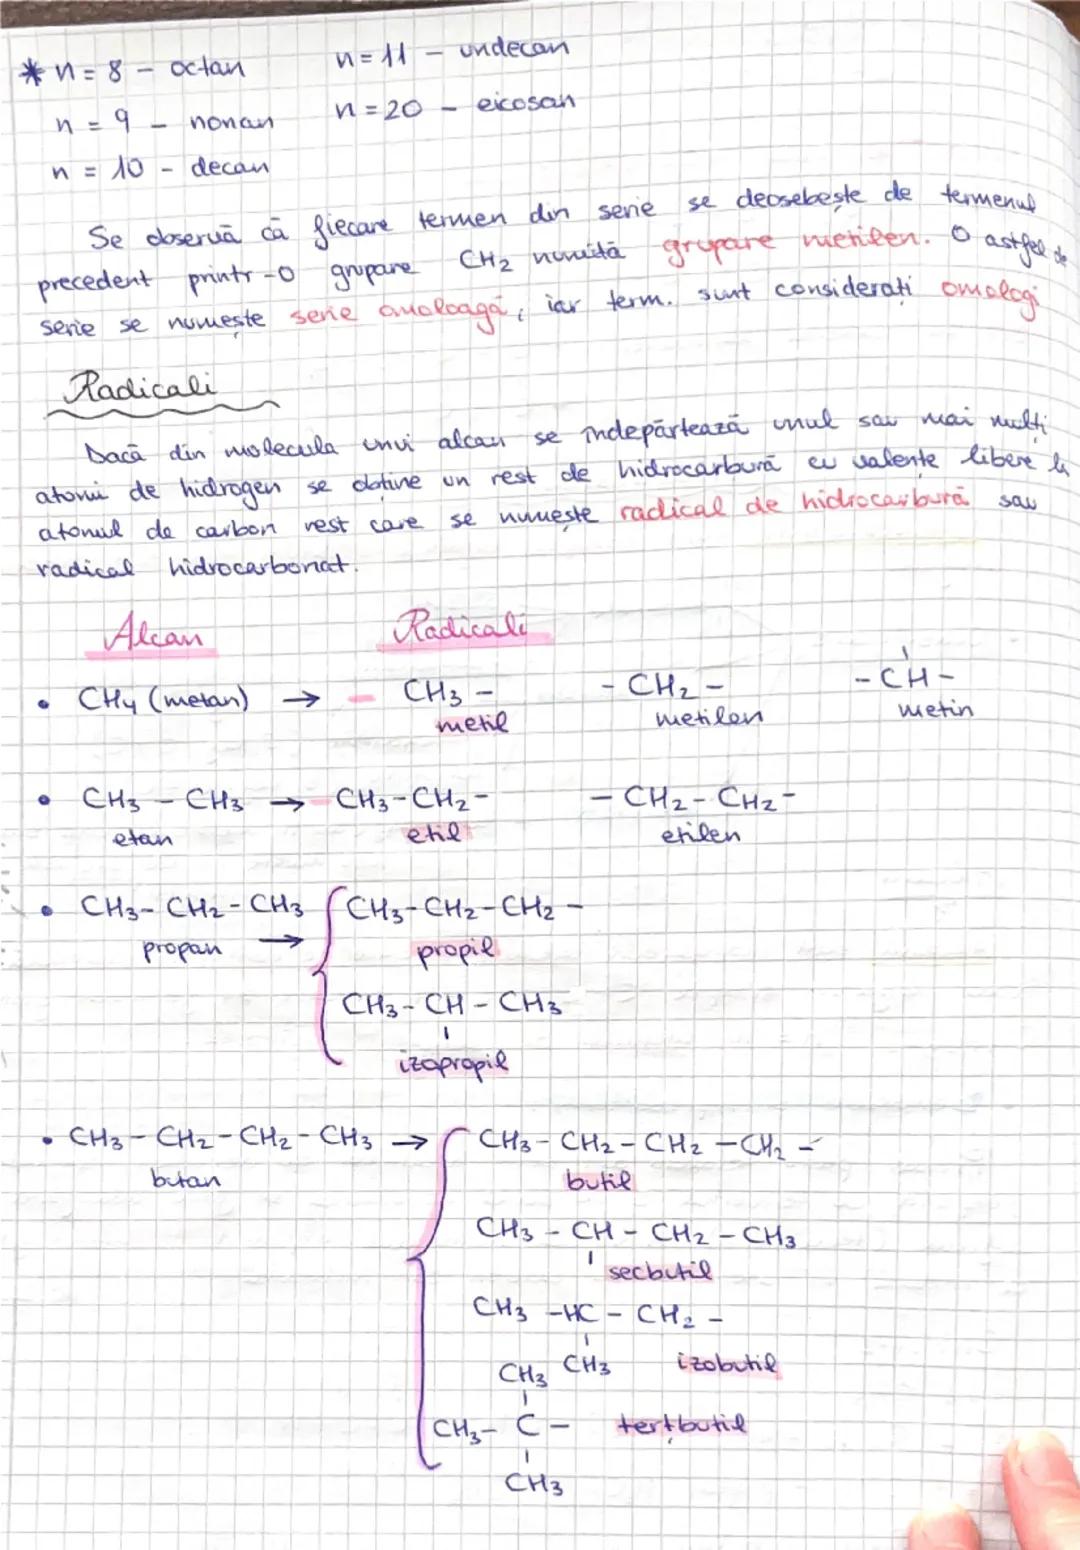 * n = 8 - octan    n = 11 - undecan
n = 9 - nonan    n = 20 - eicosan
n = 10 - decan
Se observă că fiecare termen din serie se deosebește de termenul
precedent printr-o grupare CH2 numită grupare metilen. O astfel de
serie se numește serie omoloagă, iar term. sunt considerați omologi
Radicali
Dacă din molecula unui alcan se îndepărtează unul sau mai mulți
atomi de hidrogen se obține un rest de hidrocarbură cu valențe libere la
atomul de carbon rest care se numește radical de hidrocarbură sau
radical hidrocarbonat.
Alcan    Radicali
• CH4 (metan) → - CH3 -    - CH2 -    - CH -
metil    metilen    metin
• CH3 - CH3 → CH3-CH2-    - CH2 - CH2 -
etan    etil    etilen
• CH3 - CH2 - CH3 → CH3-CH2-CH2 -
propan    propil
CH3 - CH - CH3
izopropil
• CH3 - CH2 - CH2 - CH3 → CH3 - CH2 - CH2 - CH2 -
butan    butil
CH3 - CH - CH2 - CH3
secbutil
CH3 -HC - CH2 -
CH3    izobutil
CH3
CH3- C -    tertbutil
CH3